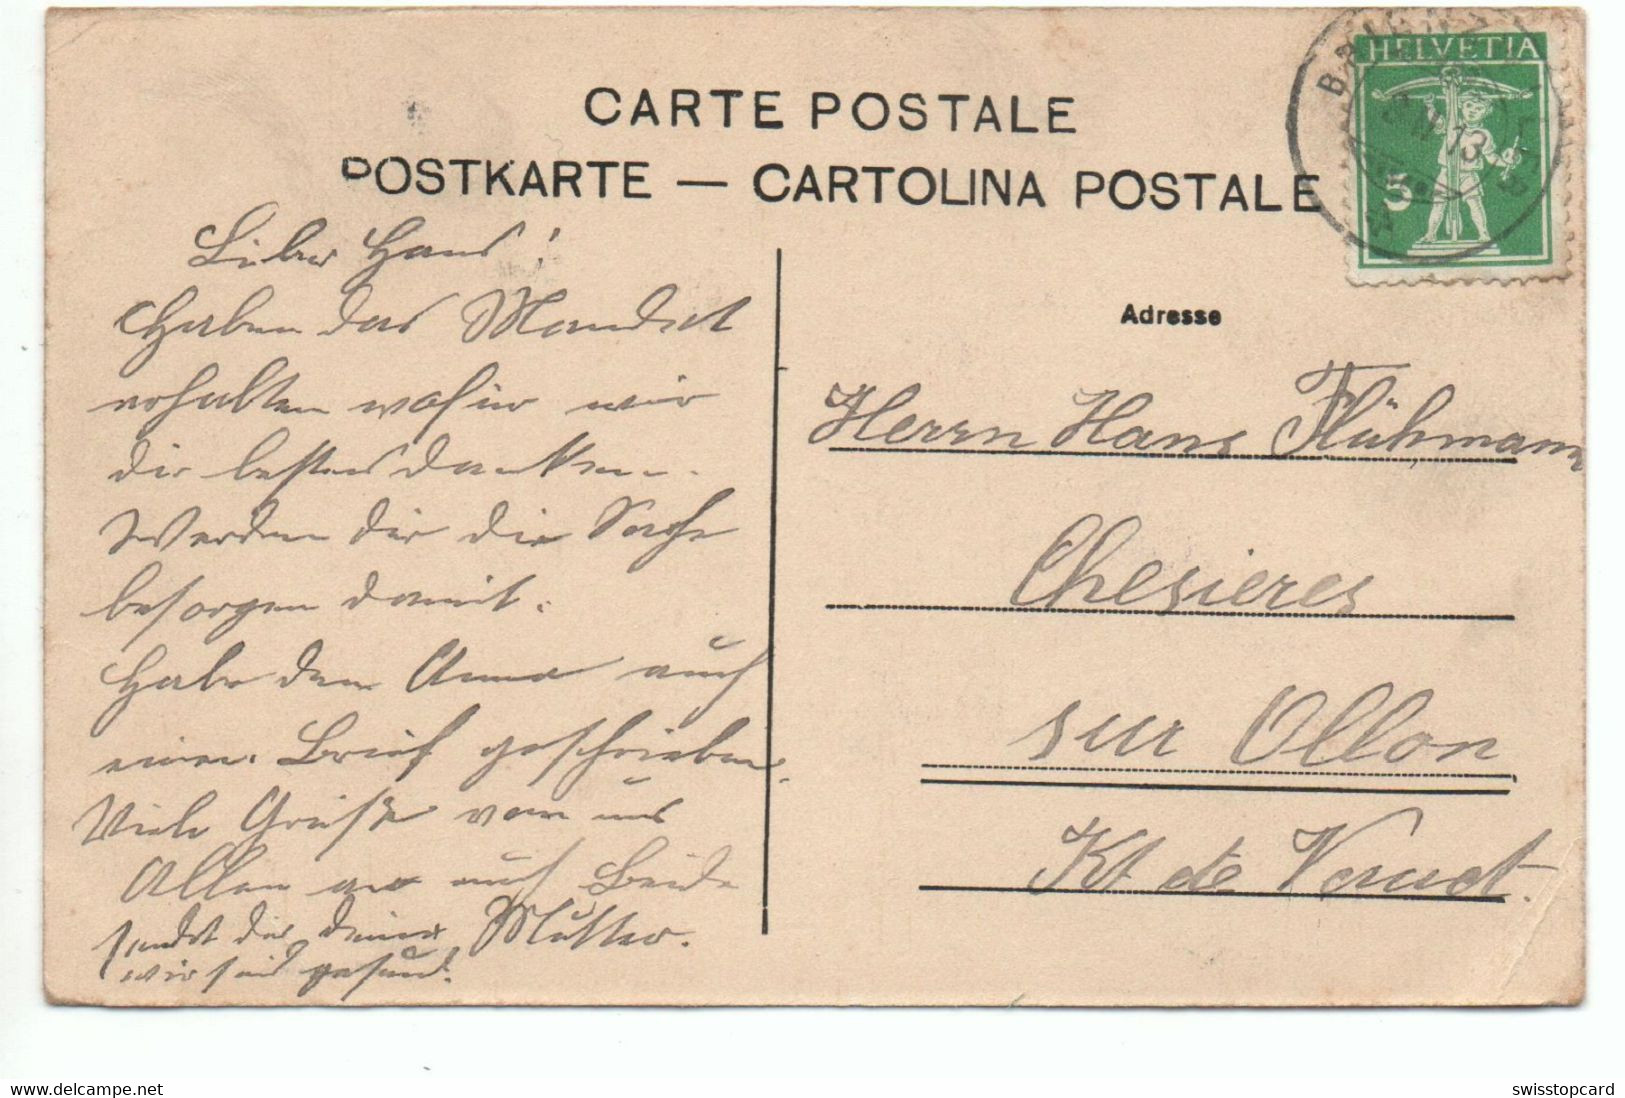 CARTE POSTALE
POSTKARTE — CARTOLINA POSTALE
HELVETIA
5
Lieber Hans!
Haben das Mandat
erhalten wofür wir
dir bestens danken.
Werden dir die Sache
besorgen damit.
Habe dem Anna auch
einen Brief geschrieben.
Viele Grüße von uns
Allen an euch Beide
sendet dir deine Mutter.
wir sind gesund.
Adresse
Herrn Hans Flühmann
Chesieres
sur Ollon
Kt de Vaud
delcampe.net
swisstopcard